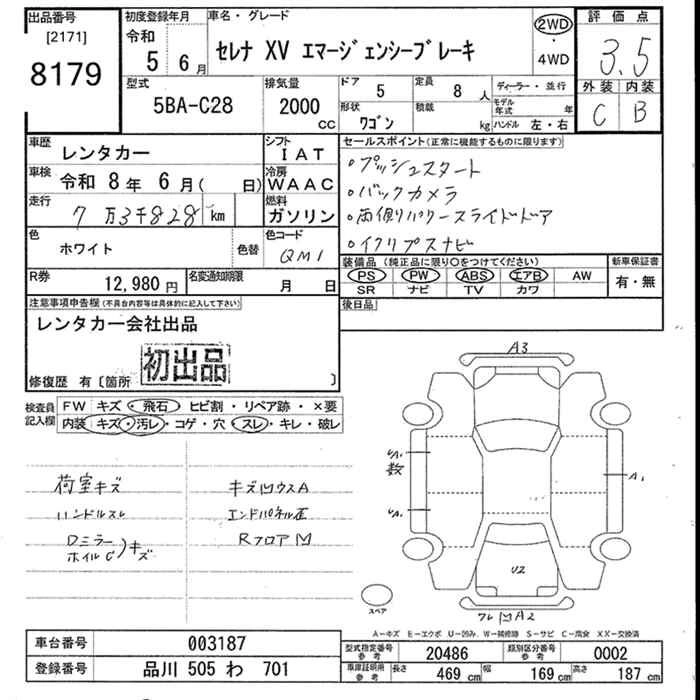 出品番号
[2171]
8179
初度登録年月
令和
5 6月
車名・グレード
セレナ XV エマージェンシーブレーキ
2WD
・
4WD
評価点
3.5
外装 内装
C B
型式
5BA-C28
排気量
2000
CC
ドア
5
定員
8人
形状
ワゴン
積載
kg
ディーラー・並行
モデル年式 年
ハンドル 左・右
車歴
レンタカー
シフト
IAT
車検
令和 8年 6月( 日)
冷房
WAAC
走行
7万3千828km
燃料
ガソリン
色
ホワイト
色替
色コード
QM1
R券
12,980円
名変通知期限
月 日
セールスポイント(正常に機能するものに限ります)
・プッシュスタート
・バックカメラ
・両側パワースライドドア
・イクリプスナビ
装備品(純正品に限り○をつけてください)
PS PW ABS エアB AW
SR ナビ TV カワ
新車保証書
有・無
後日品
注意事項申告欄(不具合内容等は具体的に記入して下さい)
レンタカー会社出品
初出品
修復歴 有〔箇所 〕
検査員記入欄
FW キズ・飛石・ヒビ割・リペア跡・×要
内装 キズ・汚レ・コゲ・穴・スレ・キレ・破レ
荷室キズ
ハンドルスレ
Dミラー
ホイルC)キズ
キズ凹ウスA
エンドパネル歪
Rフロア凹
A3
A1
数
A1
A1
U2
スペア
ワレ凹A2
A－キズ E－エクボ U－凹み W－補修跡 S－サビ C－腐食 XX－交換済
車台番号
003187
登録番号
品川 505 わ 701
型式指定番号
参考
20486
類別区分番号
参考
0002
車庫証明用
参考
長さ 469 cm 幅 169 cm 高さ 187 cm